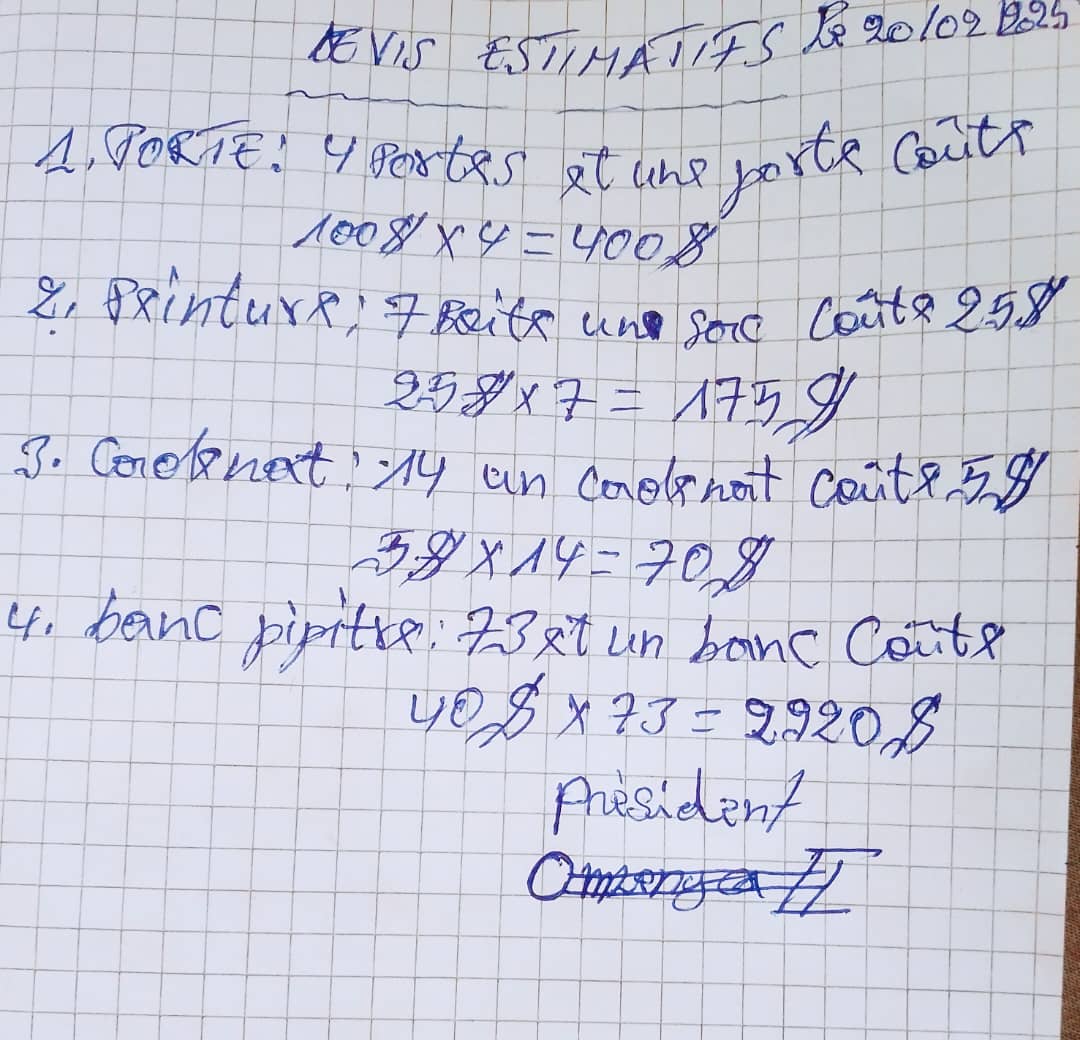 DEVIS ESTIMATIFS Le 20/02/2025
1. PORTE: 4 Portes et une porte Coûte
100$ x 4 = 400$
2. Peinture: 7 Boite une soc Coûte 25$
25$ x 7 = 175$
3. Cadenat: 14 un Cadenat Coûte 5$
5$ x 14 = 70$
4. banc pipitre: 73 et un banc Coûte
40$ x 73 = 2920$
Président
II